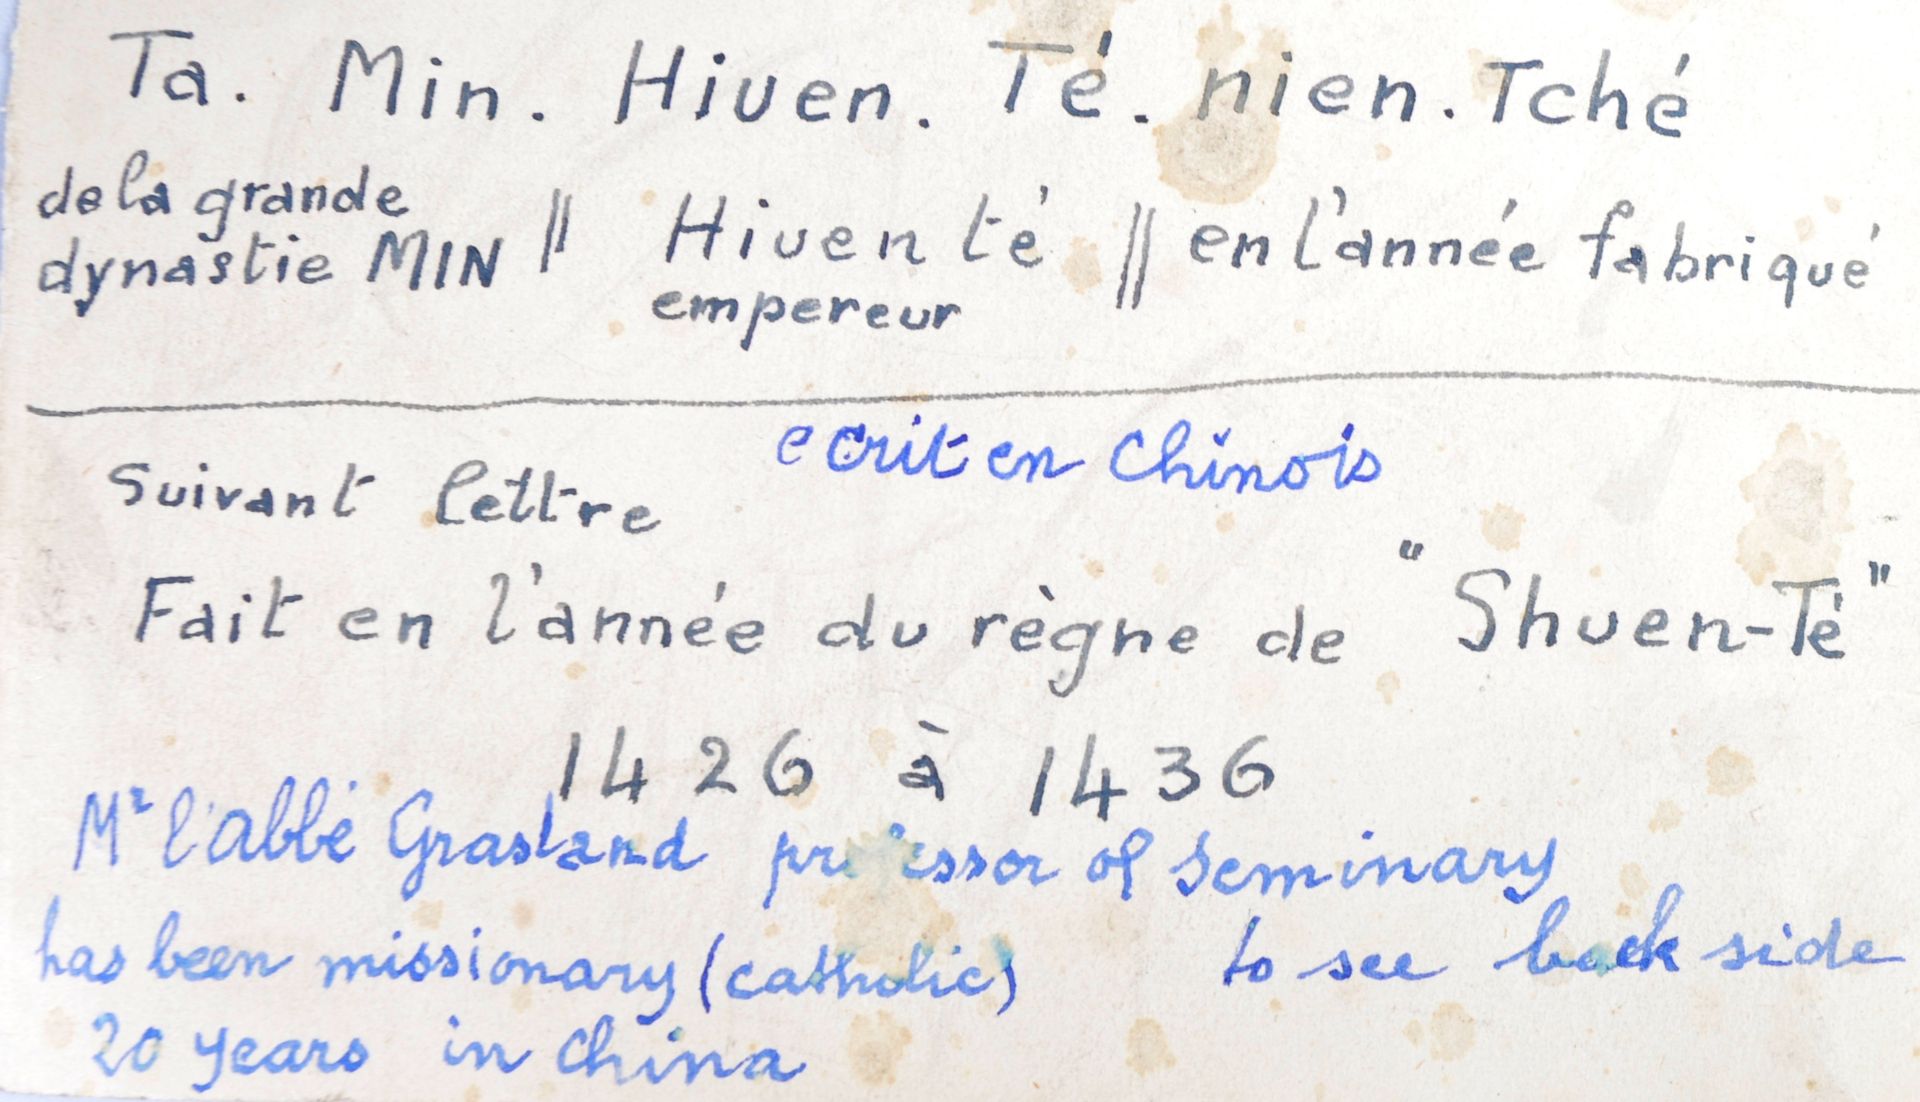 Ta. Min. Hiuen. Té. nien. Tché
de la grande
dynastie MIN || Hiuen té || en l'année fabriqué
empereur
ecrit en Chinois
Suivant lettre
Fait en l'année du règne de "Shuen-Té"
1426 à 1436
Mr l'abbé Grasland professor of Seminary
has been missionary (catholic) to see back side
20 years in China